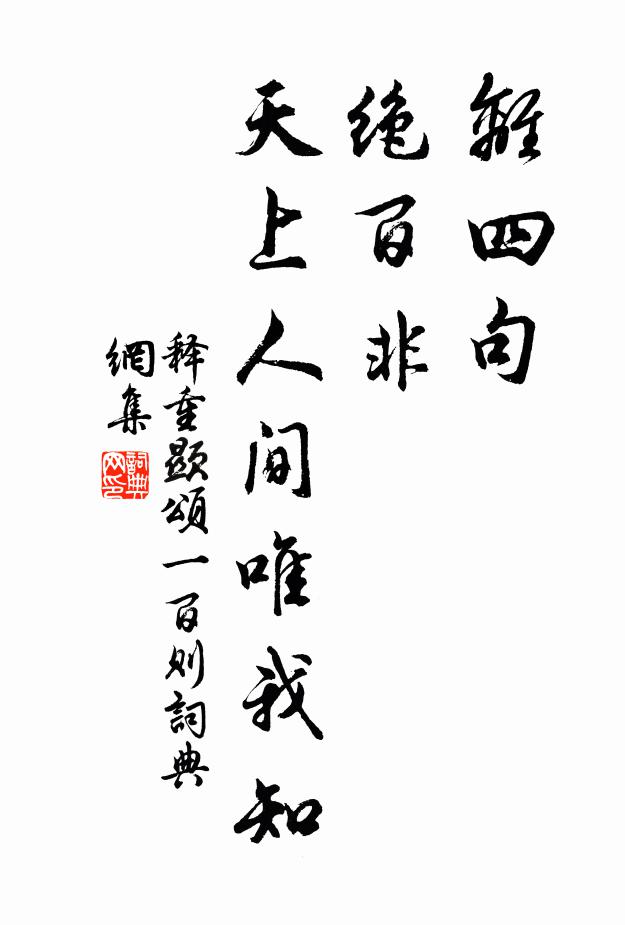 離四句
絶百非
天上人间唯我知
释重顯頌一百则詞典
網集
詞典
网印